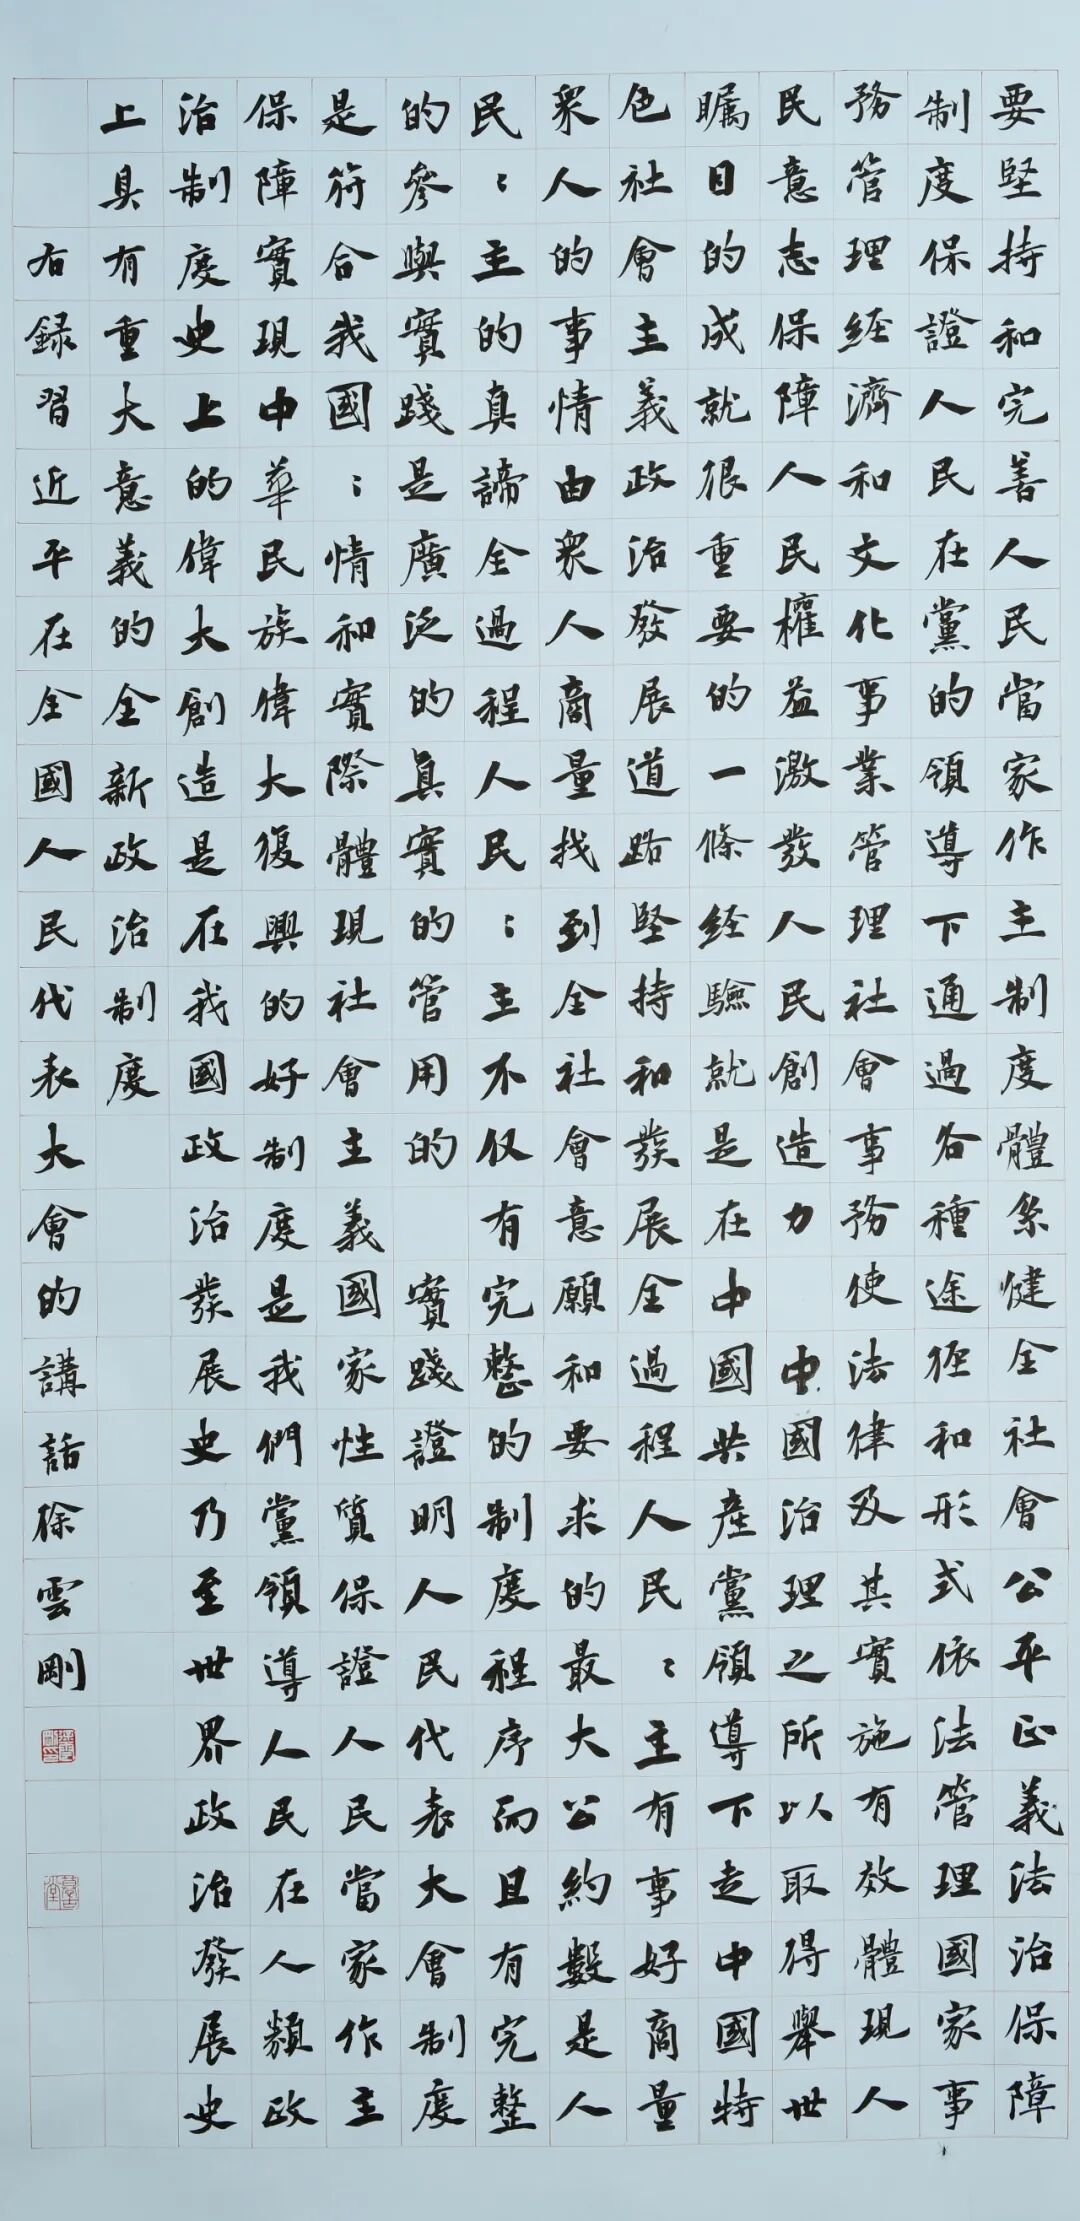 要堅持和完善人民當家作主制度體系健全社會公平正義法治保障
制度保證人民在黨的領導下通過各種途徑和形式依法管理國家事
務管理經濟和文化事業管理社會事務使法律及其實施有效體現人
民意志保障人民權益激發人民創造力 中國治理之所以取得舉世
矚目的成就很重要的一條經驗就是在中國共產黨領導下走中國特
色社會主義政治發展道路堅持和發展全過程人民〻主有事好商量
衆人的事情由衆人商量找到全社會意願和要求的最大公約數是人
民〻主的真諦全過程人民〻主不仅有完整的制度程序而且有完整
的參與實踐是廣泛的真實的管用的 實踐證明人民代表大會制度
是符合我國〻情和實際體現社會主義國家性質保證人民當家作主
保障實現中華民族偉大復興的好制度是我們黨領導人民在人類政
治制度史上的偉大創造是在我國政治發展史乃至世界政治發展史
上具有重大意義的全新政治制度
右録習近平在全國人民代表大會的講話徐雲剛